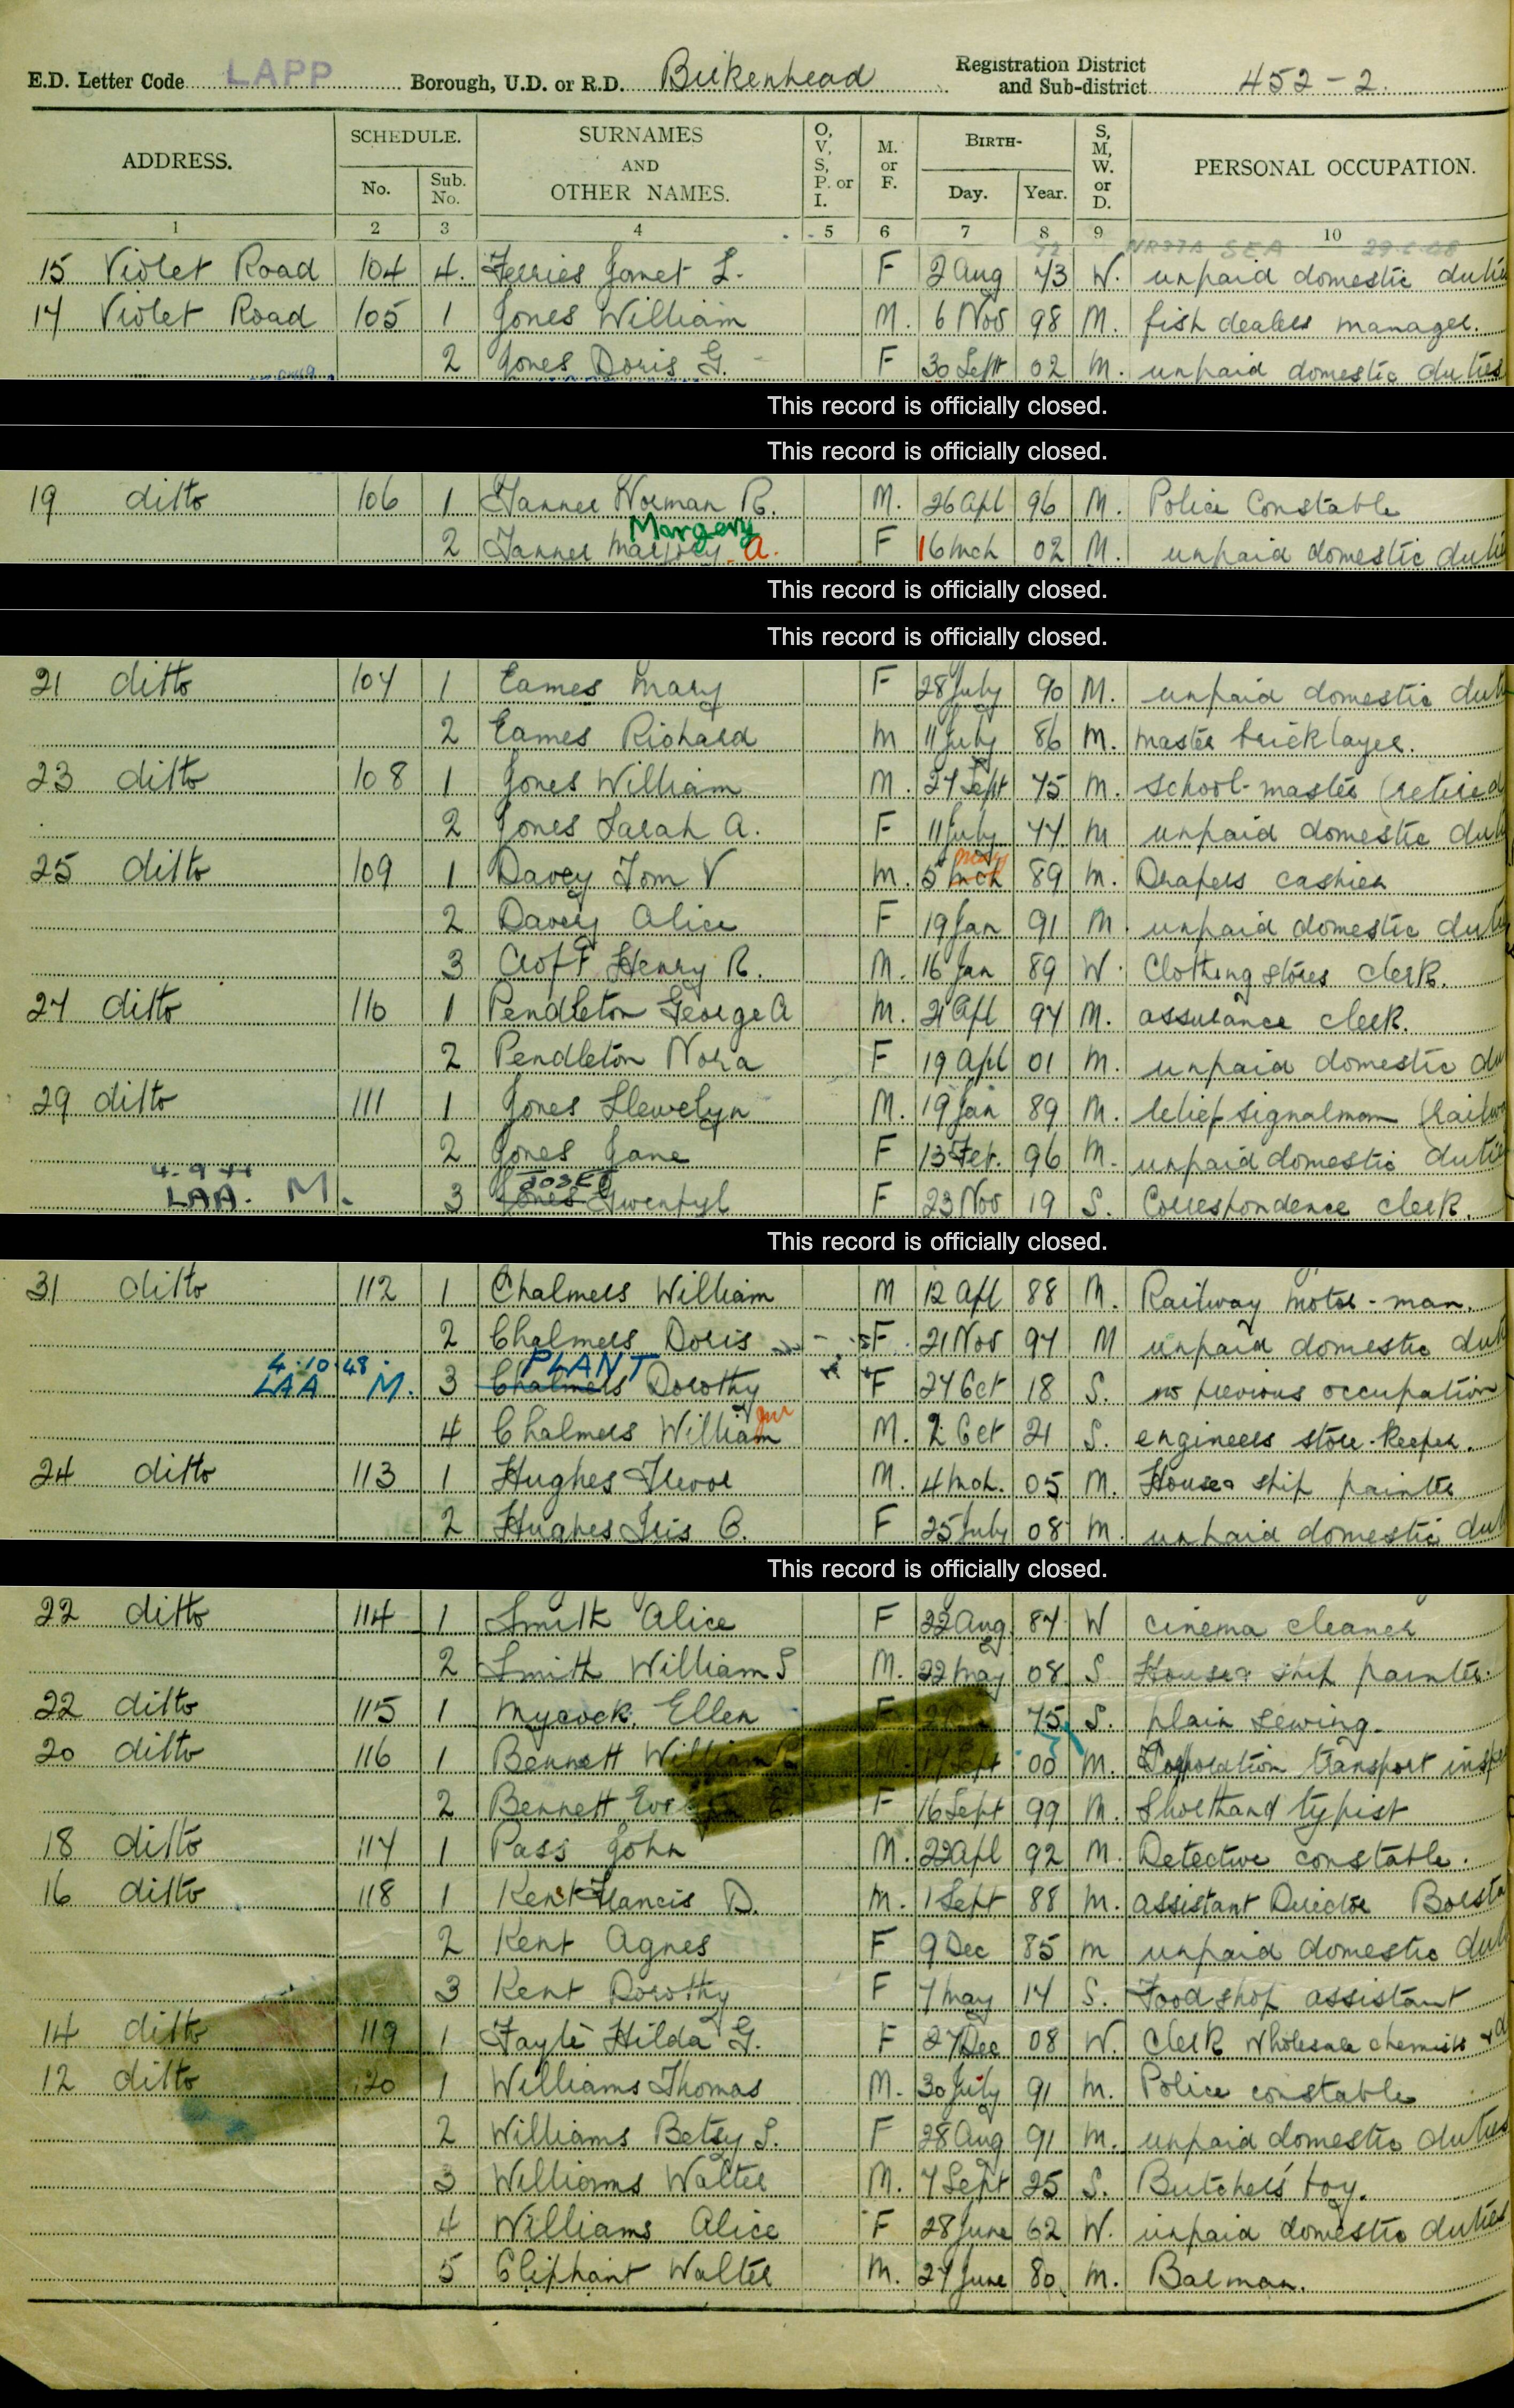 E.D. Letter Code LAPP Borough, U.D. or R.D. Birkenhead Registration District and Sub-district 452-2.
ADDRESS. SCHEDULE. No. Sub. No. SURNAMES AND OTHER NAMES. O, V, S, P. or I. M. or F. BIRTH- Day. Year. S, M, W. or D. PERSONAL OCCUPATION.
1 2 3 4 5 6 7 8 9 10
15 Violet Road 104 4. Janet L. F 2 Aug 73 W. unpaid domestic duties
17 Violet Road 105 1 Jones William M. 6 Nov 98 M. fish dealers manager.
2 Jones Doris G. F 30 Sept 02 M. unpaid domestic duties
This record is officially closed.
This record is officially closed.
19 ditto 106 1 Tanner Norman R. M. 26 Apl 96 M. Police Constable
Margery
2 Tanner A. F 16 Mch 02 M. unpaid domestic duties
This record is officially closed.
This record is officially closed.
21 ditto 107 1 Eames Mary F 28 July 90 M. unpaid domestic duti
2 Eames Richard M 11 July 86 M. master bricklayer.
23 ditto 108 1 Jones William M. 27 Sept 75 M. School-master (retired
2 Jones Sarah A. F 11 July 77 M unpaid domestic duti
May
25 ditto 109 1 Davey Tom V M. 5 Mch 89 M. Drapers cashier
2 Davey Alice F 19 Jan 91 M. unpaid domestic duti
3 Croft Henry R. M. 16 Jan 89 W. Clothing stores clerk.
27 ditto 110 1 Pendleton George A M. 21 Apl 97 M. assurance clerk.
2 Pendleton Nora F 19 Apl 01 M. unpaid domestic du
29 ditto 111 1 Jones Llewelyn M. 19 Jan 89 M. relief signalman (railwa
2 Jones Jane F 13 Feb. 96 M. unpaid domestic duties
4.9.44
LAA. M. 3 Jones Gwenfyl F 23 Nov 19 S. Correspondence clerk.
This record is officially closed.
31 ditto 112 1 Chalmers William M 12 Apl 88 M. Railway motor-man.
2 Chalmers Doris F. 21 Nov 97 M unpaid domestic duti
4.10.48. PLANT
LAA M. 3 Chalmers Dorothy F 27 Oct 18 S. no previous occupation
jnr
4 Chalmers William M. 2 Oct 21 S. engineers store-keeper.
24 ditto 113 1 Hughes Trevor M. 4 Mch. 05 M. House & ship painter
2 Hughes Iris C. F 25 July 08 M. unpaid domestic duti
This record is officially closed.
22 ditto 114 1 Smith Alice F 22 Aug. 87 W cinema cleaner
2 Smith William S M. 22 May 08 S House & ship painter.
22 ditto 115 1 Mycock. Ellen F 75 S. plain sewing.
20 ditto 116 1 Bennett William M. 17 Sept 00 M. Corporation transport inspe
2 Bennett F 16 Sept 99 M. Shorthand typist
18 ditto 117 1 Pass John M. 22 Apl 92 M. Detective constable.
16 ditto 118 1 Kent Francis D. M. 1 Sept 88 M. assistant Director Borsta
2 Kent Agnes F 9 Dec 85 M unpaid domestic duti
3 Kent Dorothy F 7 May 17 S. Food shop assistant
14 ditto 119 1 Fayle Hilda G. F 27 Dec 08 W. Clerk wholesale chemists &
12 ditto 120 1 Williams Thomas M. 30 July 91 M. Police constable
2 Williams Betsy S. F 28 Aug 91 M. unpaid domestic duties
3 Williams Walter M. 7 Sept 25 S. Butchers boy.
4 Williams Alice F 28 June 62 W. unpaid domestic duties
5 Oliphant Walter M. 27 June 80 M. Barman.